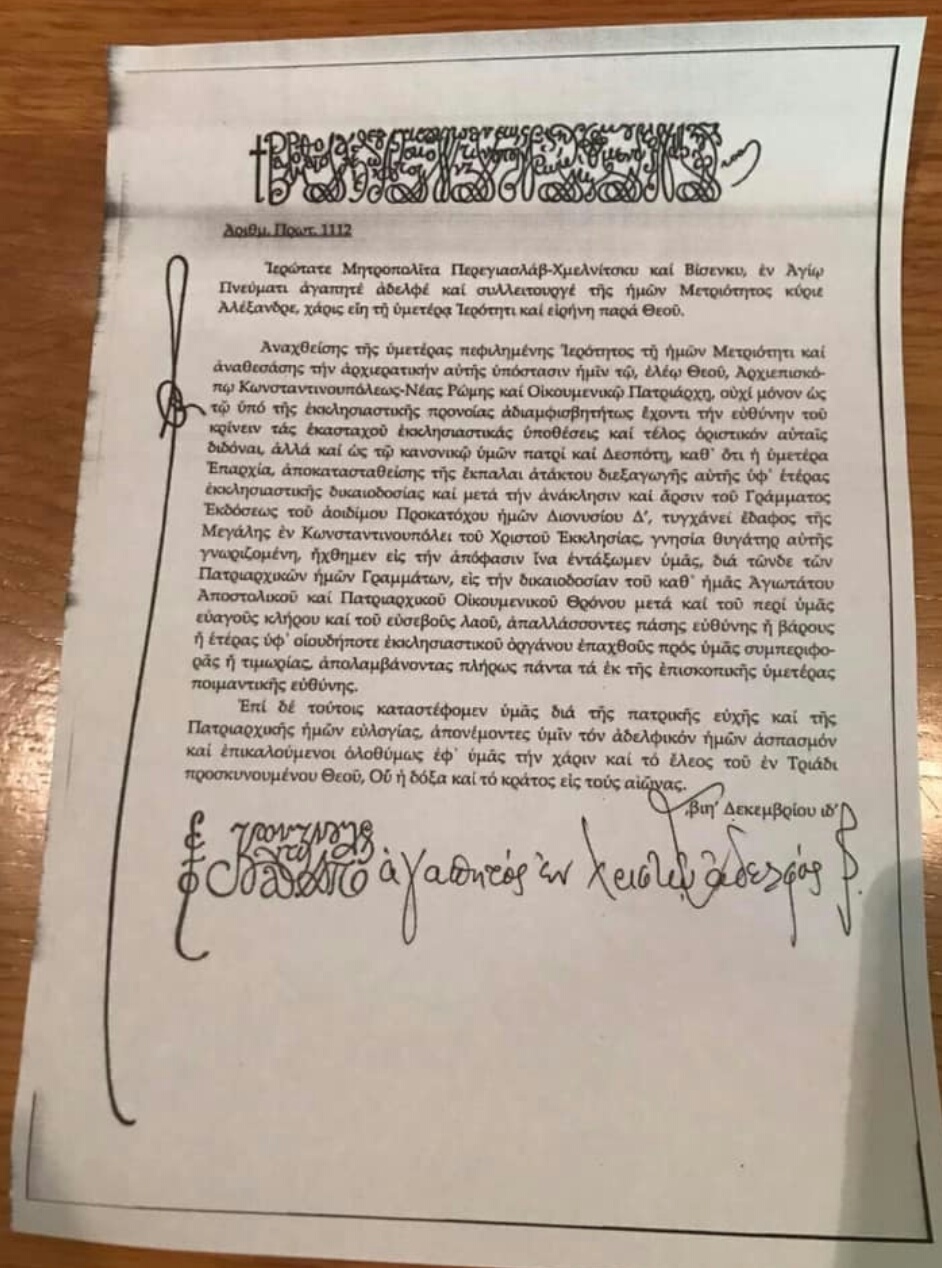 Ἀριθμ. Πρωτ. 1112
Ἱερώτατε Μητροπολῖτα Περεγιασλάβ-Χμελνίτσκυ καί Βίσενκυ, ἐν Ἁγίῳ
Πνεύματι ἀγαπητέ ἀδελφέ καί συλλειτουργέ τῆς ἡμῶν Μετριότητος κύριε
Ἀλέξανδρε, χάρις εἴη τῇ ὑμετέρᾳ Ἱερότητι καί εἰρήνη παρά Θεοῦ.
Ἀναχθείσης τῆς ὑμετέρας πεφιλημένης Ἱερότητος τῇ ἡμῶν Μετριότητι καί
ἀναθεσάσης τήν ἀρχιερατικήν αὐτῆς ὑπόστασιν ἡμῖν τῷ, ἐλέῳ Θεοῦ, Ἀρχιεπισκό-
πῳ Κωνσταντινουπόλεως-Νέας Ρώμης καί Οἰκουμενικῷ Πατριάρχῃ, οὐχί μόνον ὡς
τῷ ὑπό τῆς ἐκκλησιαστικῆς προνοίας ἀδιαμφισβητήτως ἔχοντι τήν εὐθύνην τοῦ
κρίνειν τάς ἑκασταχοῦ ἐκκλησιαστικάς ὑποθέσεις καί τέλος ὁριστικόν αὐταῖς
διδόναι, ἀλλά καί ὡς τῷ κανονικῷ ὑμῶν πατρί καί Δεσπότῃ, καθ᾽ ὅτι ἡ ὑμετέρα
Ἐπαρχία, ἀποκατασταθείσης τῆς ἔκπαλαι ἀτάκτου διεξαγωγῆς αὐτῆς ὑφ᾽ ἑτέρας
ἐκκλησιαστικῆς δικαιοδοσίας καί μετά τήν ἀνάκλησιν καί ἄρσιν τοῦ Γράμματος
Ἐκδόσεως τοῦ ἀοιδίμου Προκατόχου ἡμῶν Διονυσίου Δ᾽, τυγχάνει ἔδαφος τῆς
Μεγάλης ἐν Κωνσταντινουπόλει τοῦ Χριστοῦ Ἐκκλησίας, γνησία θυγάτηρ αὐτῆς
γνωριζομένη, ἤχθημεν εἰς τήν ἀπόφασιν ἵνα ἐντάξωμεν ὑμᾶς, διά τῶνδε τῶν
Πατριαρχικῶν ἡμῶν Γραμμάτων, εἰς τήν δικαιοδοσίαν τοῦ καθ᾽ ἡμᾶς Ἁγιωτάτου
Ἀποστολικοῦ καί Πατριαρχικοῦ Οἰκουμενικοῦ Θρόνου μετά καί τοῦ περί ὑμᾶς
εὐαγοῦς κλήρου καί τοῦ εὐσεβοῦς λαοῦ, ἀπαλλάσσοντες πάσης εὐθύνης ἤ βάρους
ἤ ἑτέρας ὑφ᾽ οἱουδήποτε ἐκκλησιαστικοῦ ὀργάνου ἐπαχθοῦς πρός ὑμᾶς συμπεριφο-
ρᾶς ἤ τιμωρίας, ἀπολαμβάνοντας πλήρως πάντα τά ἐκ τῆς ἐπισκοπικῆς ὑμετέρας
ποιμαντικῆς εὐθύνης.
Ἐπί δέ τούτοις καταστέφομεν ὑμᾶς διά τῆς πατρικῆς εὐχῆς καί τῆς
Πατριαρχικῆς ἡμῶν εὐλογίας, ἀπονέμοντες ὑμῖν τόν ἀδελφικόν ἡμῶν ἀσπασμόν
καί ἐπικαλούμενοι ὁλοθύμως ἐφ᾽ ὑμᾶς τήν χάριν καί τό ἔλεος τοῦ ἐν Τριάδι
προσκυνουμένου Θεοῦ, Οὗ ἡ δόξα καί τό κράτος εἰς τούς αἰῶνας.
͵βιη᾽ Δεκεμβρίου ιδ᾽
ἀγαπητός ἐν Χριστῷ ἀδελφός